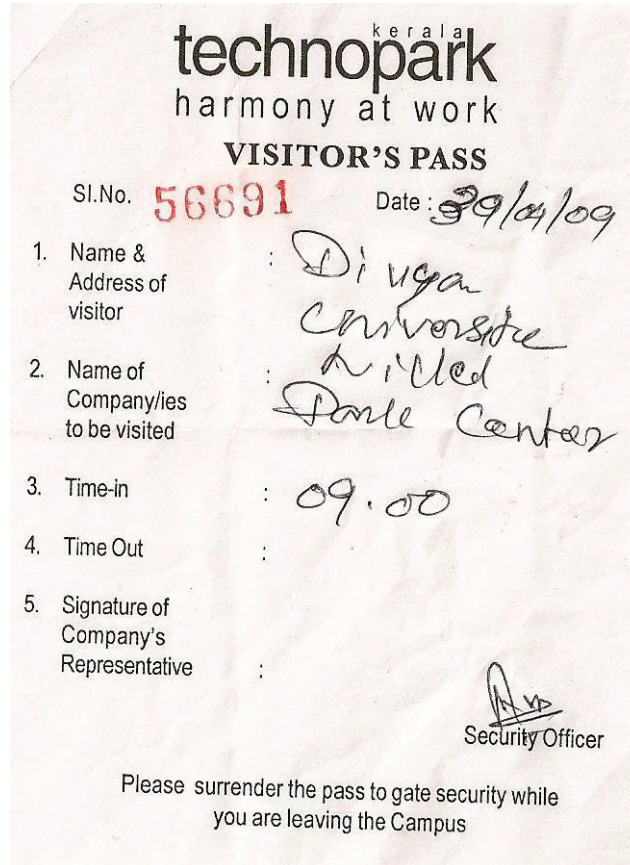 kerala
technopark
harmony at work
VISITOR'S PASS
Sl.No. 56691 Date : 29/04/09
1. Name & Address of visitor :
2. Name of Company/ies to be visited :
Center
3. Time-in : 09.00
4. Time Out :
5. Signature of Company's Representative :
Security Officer
Please surrender the pass to gate security while
you are leaving the Campus